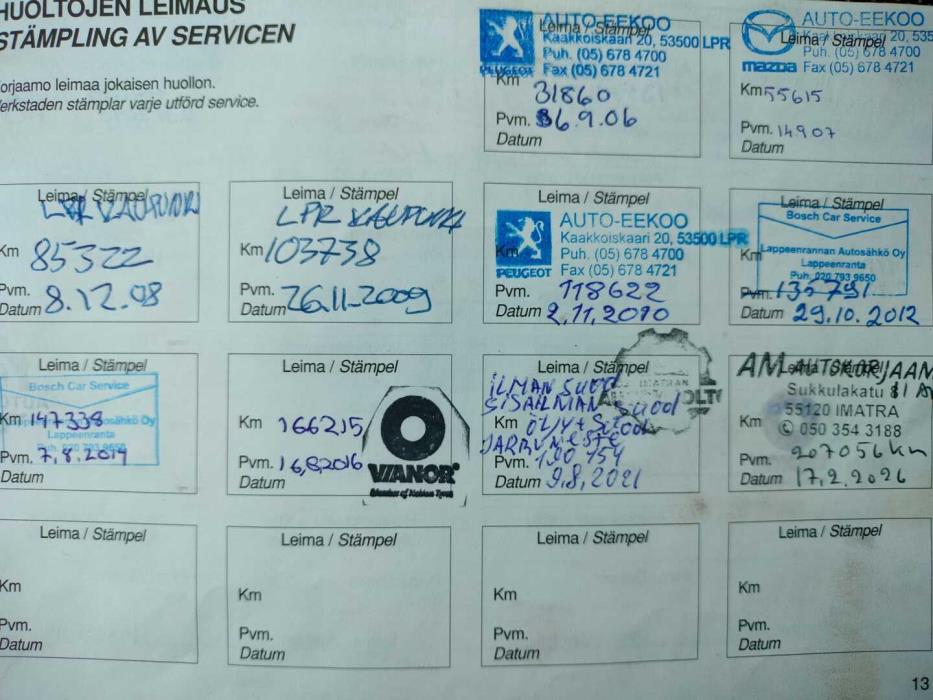 HUOLTOJEN LEIMAUS
STÄMPLING AV SERVICEN
orjaamo leimaa jokaisen huollon.
erkstaden stämplar varje utförd service.
Leima / Stämpel
AUTO-EEKOO
Kaakkoiskaari 20, 53500 LPR
Puh. (05) 678 4700
Fax (05) 678 4721
PEUGEOT
Km 31860
Pvm. 6.9.06
Datum
Leima / Stämpel
AUTO-EEKOO
20, 535
(05) 678 4700
mazda Fax (05) 678 4721
Km 55615
Pvm. 14907
Datum
Leima / Stämpel
LPR KAUPUNKI
Km 85322
Pvm.
Datum 8.12.08
Leima / Stämpel
LPR KAUPUNKI
Km 103738
Pvm.
Datum 26.11-2009
Leima / Stämpel
AUTO-EEKOO
Kaakkoiskaari 20, 53500 LPR
Puh. (05) 678 4700
PEUGEOT Fax (05) 678 4721
Pvm. 118622
Datum 2.11.2010
Leima / Stämpel
Bosch Car Service
Lappeenrannan Autosähkö Oy
Km Lappeenranta
Puh. 020 793 9650
Pvm. 135791
Datum 29.10.2012
Leima / Stämpel
Bosch Car Service
Km 147338
Autosähkö Oy
Lappeenranta
Puh. 020 793 9650
Pvm. 7.8.2014
Datum
Leima / Stämpel
Km 166215
Pvm. 16,8,2016
Datum
VIANOR
Member of Nokian Tyres
Leima / Stämpel
ILMAN SUOD
SISÄILMAN SUOD
IMATRAN
Km ÖLJY+ SUOD
JARRUNESTE
Pvm. 190 154
Datum 9,8,2021
Leima / Stämpel
AM AUTOKORJAAM
Sukkulakatu 11 A
55120 IMATRA
Km 050 354 3188
Pvm. 207056 km
Datum 17,2.2026
Leima / Stämpel
Km
Pvm.
Datum
Leima / Stämpel
Km
Pvm.
Datum
Leima / Stämpel
Km
Pvm.
Datum
Leima / Stämpel
Km
Pvm.
Datum
13